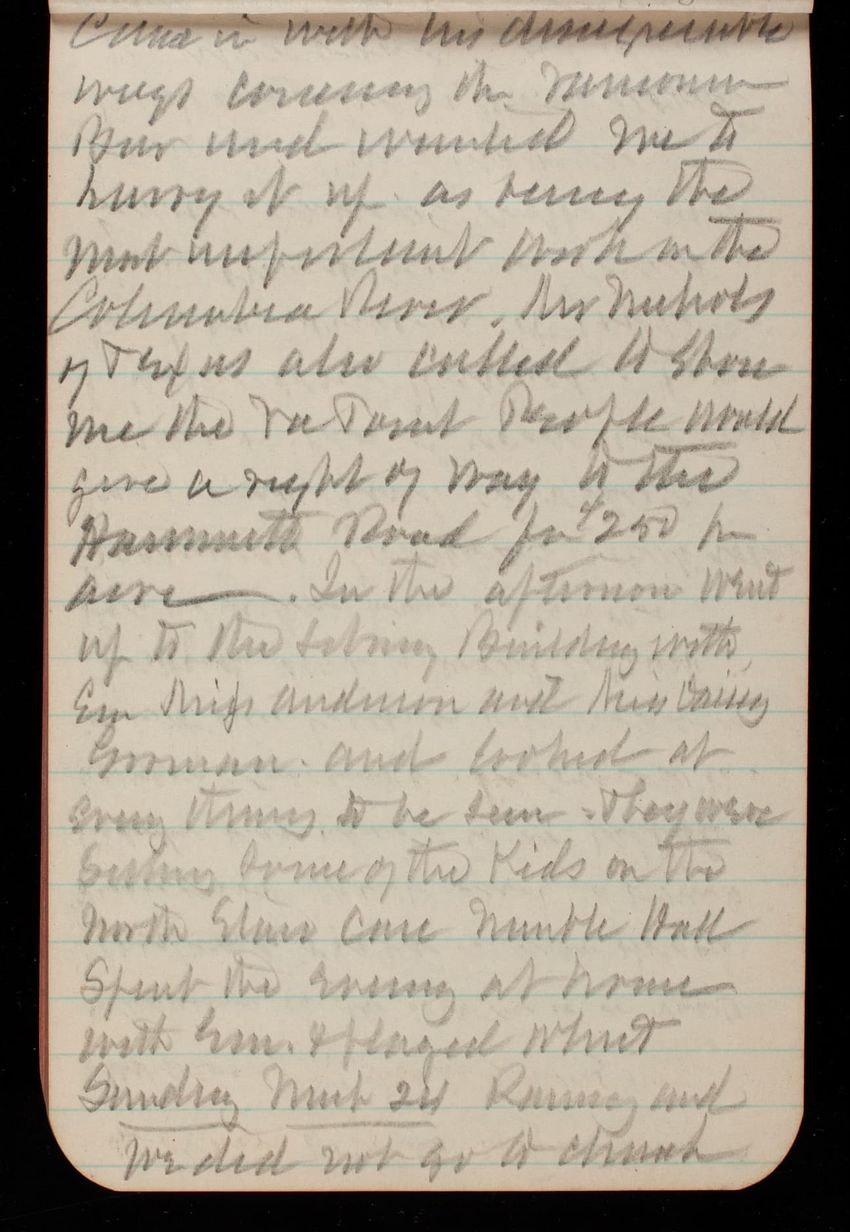 Came in with his disagreeable
ways concerning the Vancouver
Bar and wanted me to
hurry it up as being the
most important work on the
Columbia River. Mr Nichols
of Texas also called to show
me the Point People would
give a right of way to the
Hammett Road for $250 per
acre. In the afternoon went
up to the Library Building with
Em Miss Anderson and Miss Daisy
Gorman and looked at
every thing to be seen. They were
Setting some of the Kids on the
North Stair Case Marble Hall
Spent the evening at home
with Em. & played whist
Sunday Mch 24 Rainy and
we did not go to church